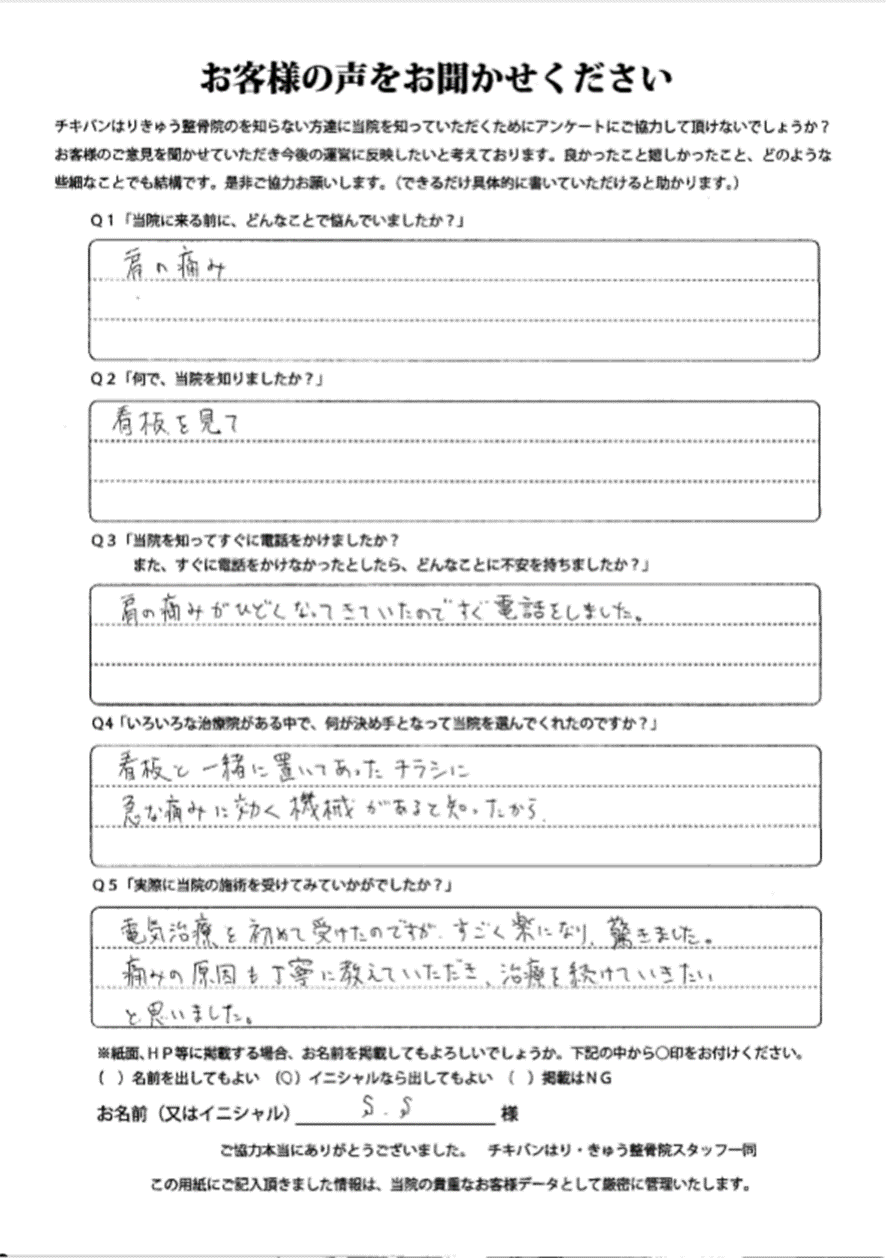 お客様の声をお聞かせください
チキバンはりきゅう整骨院のを知らない方達に当院を知っていただくためにアンケートにご協力して頂けないでしょうか？
お客様のご意見を聞かせていただき今後の運営に反映したいと考えております。良かったこと嬉しかったこと、どのような
些細なことでも結構です。是非ご協力お願いします。（できるだけ具体的に書いていただけると助かります。）
Ｑ１「当院に来る前に、どんなことで悩んでいましたか？」
肩の痛み
Ｑ２「何で、当院を知りましたか？」
看板を見て
Ｑ３「当院を知ってすぐに電話をかけましたか？
また、すぐに電話をかけなかったとしたら、どんなことに不安を持ちましたか？」
肩の痛みがひどくなってきていたのですぐ電話をしました。
Q4「いろいろな治療院がある中で、何が決め手となって当院を選んでくれたのですか？」
看板と一緒に置いてあったチラシに
急な痛みに効く機械があると知ったから.
Ｑ５「実際に当院の施術を受けてみていかがでしたか？」
電気治療を初めて受けたのですが、すごく楽になり、驚きました。
痛みの原因も丁寧に教えていただき、治療を続けていきたい
と思いました。
※紙面、ＨＰ等に掲載する場合、お名前を掲載してもよろしいでしょうか。下記の中から〇印をお付けください。
（　）名前を出してもよい　（○）イニシャルなら出してもよい　（　）掲載はＮＧ
お名前（又はイニシャル） S.S 様
ご協力本当にありがとうございました。　チキバンはり・きゅう整骨院スタッフ一同
この用紙にご記入頂きました情報は、当院の貴重なお客様データとして厳密に管理いたします。